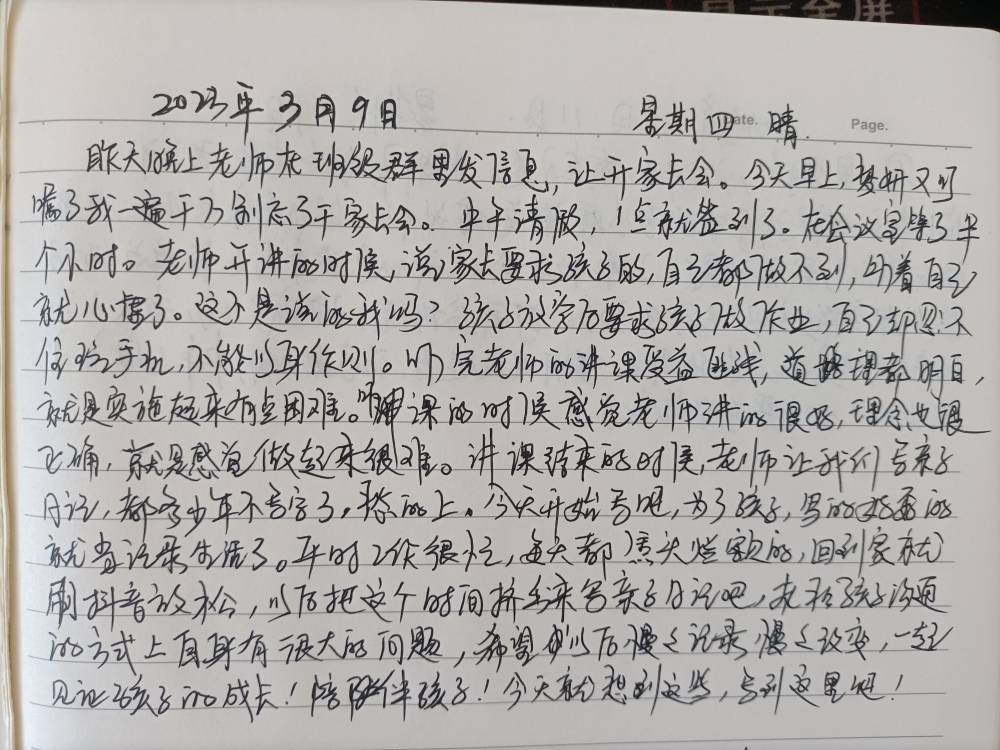 显示全屏
Date.
Page.
2023年3月9日 星期四 晴
昨天晚上老师在班级群里发信息,让开家长会。今天早上,梦妍又叮
嘱了我一遍千万别忘了开家长会。中午请假,1点就签到了。在会议室等了半
个小时。老师开讲的时候,说家长要求孩子的,自己都做不到,听着自己
就心慌了。这不是说的我吗?孩子放学后要求孩子做作业,自己却忍不
住玩手机,不能以身作则。听完老师的讲课受益匪浅,道理都明白,
就是实施起来有点困难。听课的时候感觉老师讲的很好,理念也很
正确,就是感觉做起来很难。讲课结束的时候,老师让我们写亲子
日记,都多少年不写字了,愁的上。今天开始写吧,为了孩子,写的好歪的
就当记录生活了。平时工作很忙,每天都焦头烂额的,回到家就
刷抖音放松,以后把这个时间挤出来写亲子日记吧,我和孩子沟通
的方式上自身有很大的问题,希望以后慢慢记录慢慢改变,一起
见证孩子的成长!陪伴孩子!今天就想到这些,写到这里吧!